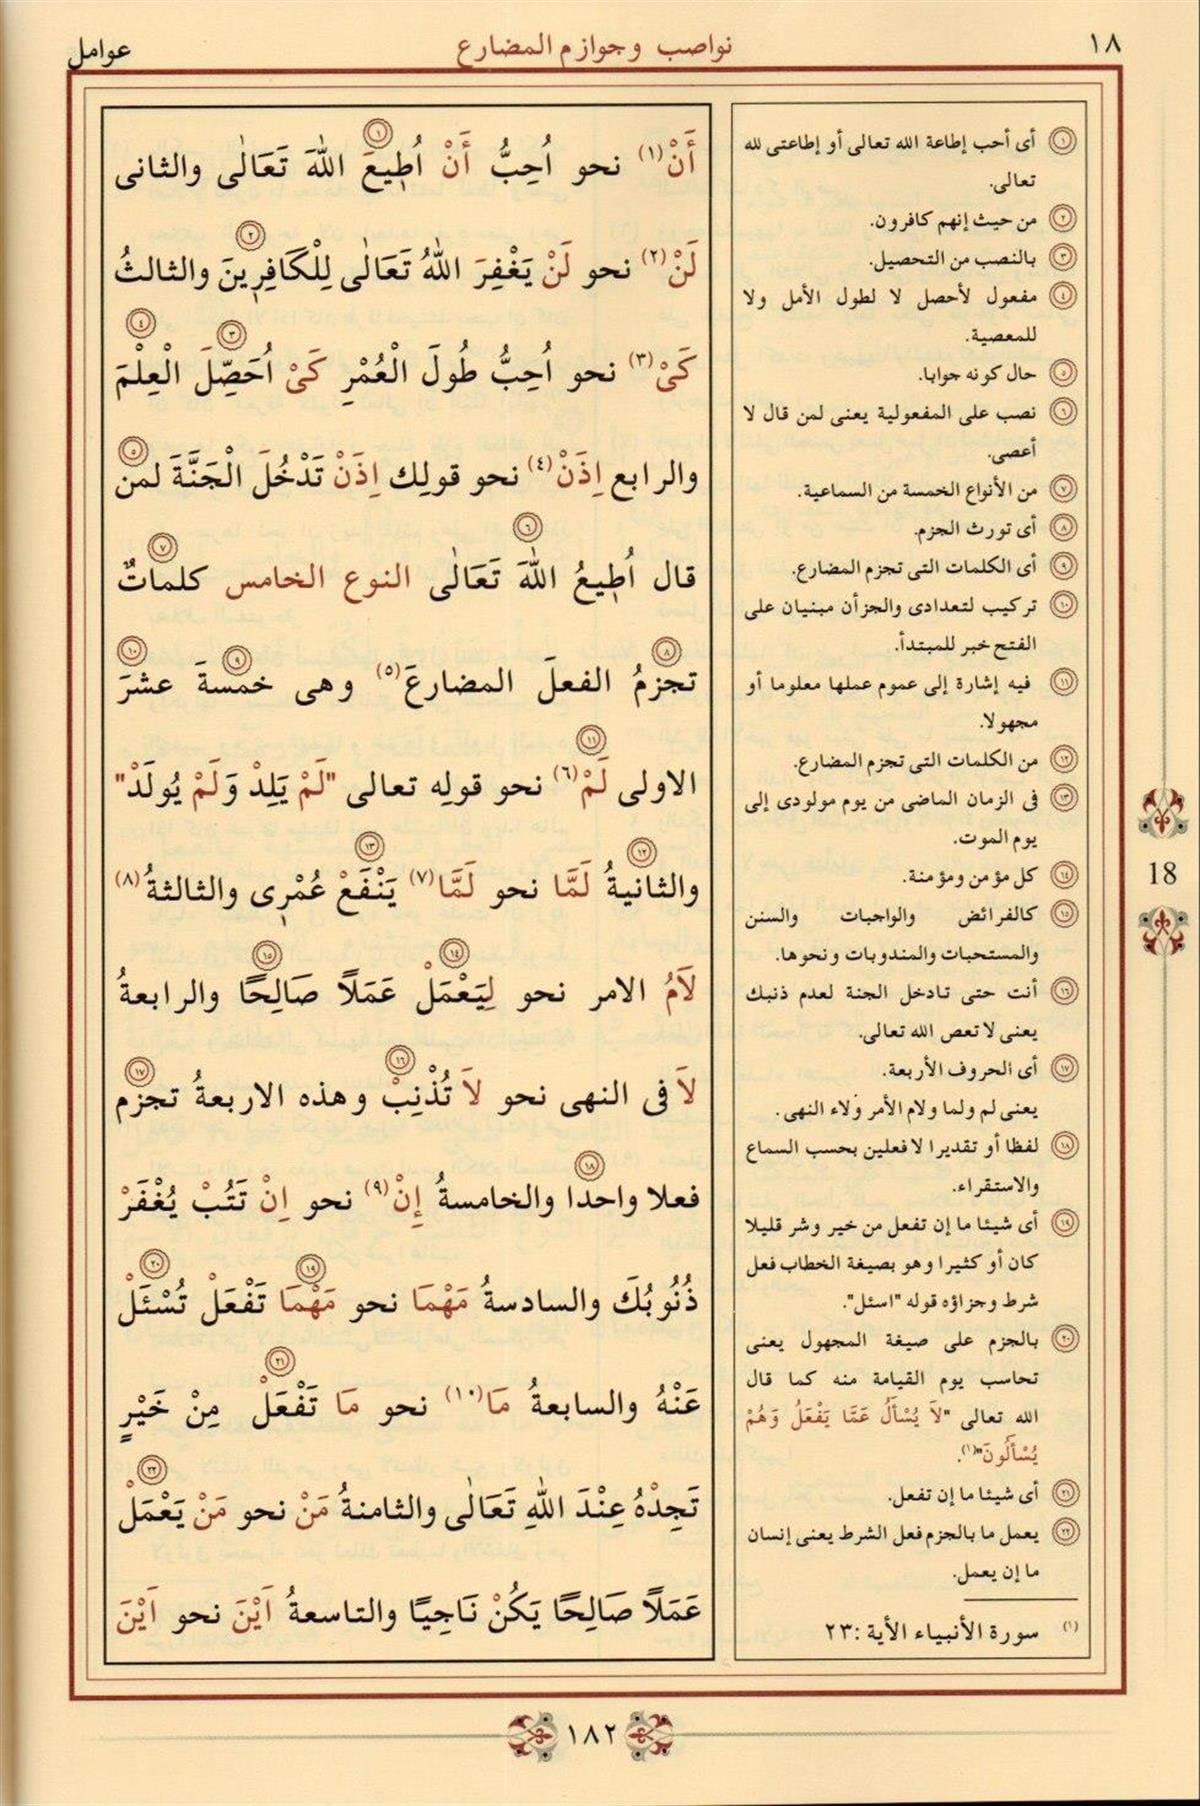 ١٨
نواصب وجوازم المضارع
عوامل
أَنْ(١) نحو اُحِبُّ أَنْ اُطٖيعَ ① اللهَ تَعَالٰى والثانى
لَنْ(٢) نحو لَنْ يَغْفِرَ اللهُ تَعَالٰى ② لِلْكَافِرٖينَ والثالثُ
كَىْ(٣) نحو اُحِبُّ طُولَ الْعُمْرِ كَىْ اُحَصِّلَ ③ الْعِلْمَ ④
والرابع اِذَنْ(٤) نحو قولِك اِذَنْ تَدْخُلَ الْجَنَّةَ ⑤ لمن
قال اُطٖيعُ اللهَ ⑥ تَعَالٰى النوع الخامس كلماتٌ ⑦
تجزمُ ⑧ الفعلَ المضارعَ(٥) وهى ⑨ خمسةَ عشرَ ⑩
الاولى لَمْ(٦) ⑪ نحو قولِه تعالى "لَمْ يَلِدْ وَلَمْ يُولَدْ"
والثانيةُ ⑫ لَمَّا نحو لَمَّا(٧) يَنْفَعْ ⑬ عُمْرٖى والثالثةُ(٨)
لاَمُ الامر نحو لِيَعْمَلْ ⑭ عَمَلاً صَالِحًا ⑮ والرابعةُ
لاَ فى النهى نحو لاَ تُذْنِبْ ⑯ وهذه الاربعةُ تجزم ⑰
فعلا واحدا ⑱ والخامسةُ إِنْ(٩) نحو اِنْ تَتُبْ يُغْفَرْ
ذُنُوبُكَ والسادسةُ مَهْمَا نحو مَهْمَا ⑲ تَفْعَلْ تُسْئَلْ ⑳
عَنْهُ والسابعةُ مَا(١٠) نحو مَا تَفْعَلْ ㉑ مِنْ خَيْرٍ
تَجِدْهُ عِنْدَ اللهِ تَعَالٰى والثامنةُ مَنْ نحو مَنْ يَعْمَلْ ㉒
عَمَلاً صَالِحًا يَكُنْ نَاجِيًا والتاسعةُ اَيْنَ نحو اَيْنَ
① أى أحب إطاعة الله تعالى أو إطاعتى لله
تعالى.
② من حيث إنهم كافرون.
③ بالنصب من التحصيل.
④ مفعول لأحصل لا لطول الأمل ولا
للمعصية.
⑤ حال كونه جوابا.
⑥ نصب على المفعولية يعنى لمن قال لا
أعصى.
⑦ من الأنواع الخمسة من السماعية.
⑧ أى تورث الجزم.
⑨ أى الكلمات التى تجزم المضارع.
⑩ تركيب لتعدادى والجزأن مبنيان على
الفتح خبر للمبتدأ.
⑪ فيه إشارة إلى عموم عملها معلوما أو
مجهولا.
⑫ من الكلمات التى تجزم المضارع.
⑬ فى الزمان الماضى من يوم مولودى إلى
يوم الموت.
⑭ كل مؤمن ومؤمنة.
⑮ كالفرائض والواجبات والسنن
والمستحبات والمندوبات ونحوها.
⑯ أنت حتى تادخل الجنة لعدم ذنبك
يعنى لا تعص الله تعالى.
⑰ أى الحروف الأربعة.
يعنى لم ولما ولام الأمر ولاء النهى.
⑱ لفظا أو تقديرا لا فعلين بحسب السماع
والاستقراء.
⑲ أى شيئا ما إن تفعل من خير وشر قليلا
كان أو كثيرا وهو بصيغة الخطاب فعل
شرط وجزاؤه قوله "اسئل".
⑳ بالجزم على صيغة المجهول يعنى
تحاسب يوم القيامة منه كما قال
الله تعالى "لاَ يُسْأَلُ عَمَّا يَفْعَلُ وَهُمْ
يُسْأَلُونَ"(١).
㉑ أى شيئا ما إن تفعل.
㉒ يعمل ما بالجزم فعل الشرط يعنى إنسان
ما إن يعمل.
(١) سورة الأنبياء الأية :٢٣
18
١٨٢